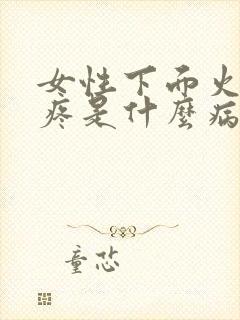 女性下而火
疼是什麼病
童芯